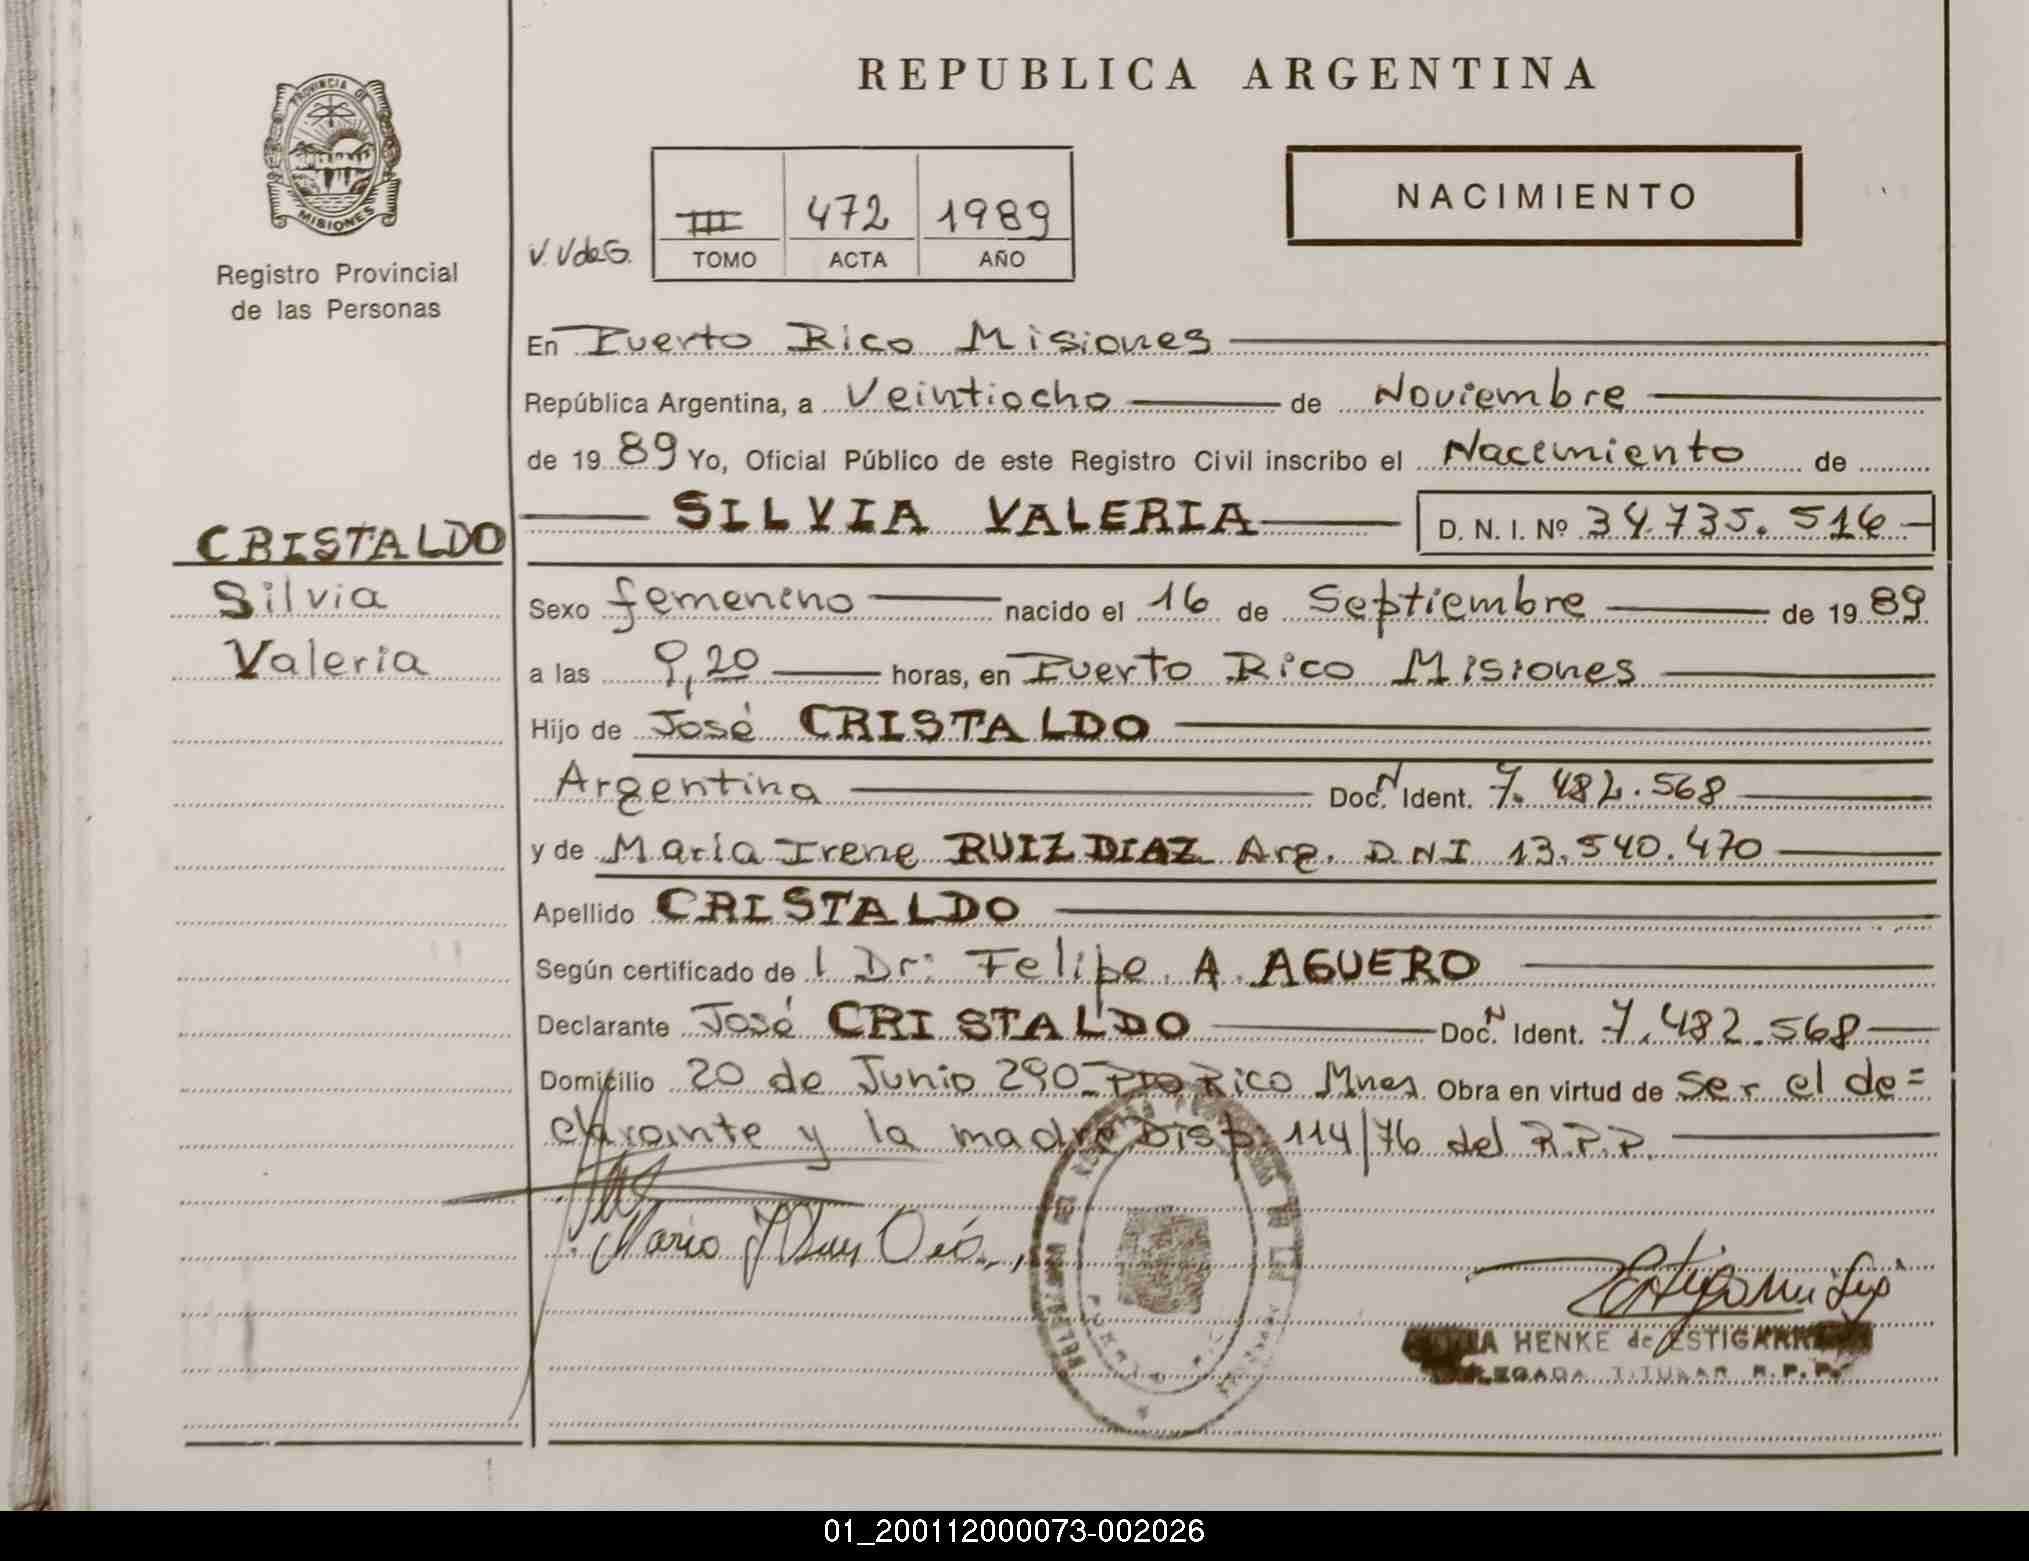 REPUBLICA ARGENTINA
PROVINCIA DE
MISIONES
Registro Provincial
de las Personas
V. V de G.
III 472 1989
TOMO ACTA AÑO
NACIMIENTO
En Puerto Rico Misiones
República Argentina, a Veintiocho de Noviembre
de 1989 Yo, Oficial Público de este Registro Civil inscribo el Nacimiento de
SILVIA VALERIA D. N. I. Nº 34.735.516
CRISTALDO
Silvia
Valeria
Sexo femenino nacido el 16 de Septiembre de 1989
a las 9,20 horas, en Puerto Rico Misiones
Hijo de José CRISTALDO
Argentina Doc. N Ident. 7.482.568
y de María Irene RUIZ DIAZ Arg. DNI 13.540.470
Apellido CRISTALDO
Según certificado de l Dr: Felipe A. AGUERO
Declarante José CRISTALDO Doc. N Ident. 7.482.568
Domicilio 20 de Junio 290 Pto Rico Mnes Obra en virtud de Ser el de=
clarante y la madre Disp. 114/76 del R.P.P.
HENKE de ESTIGARR
TITULAR R.P.P.
01_200112000073-002026